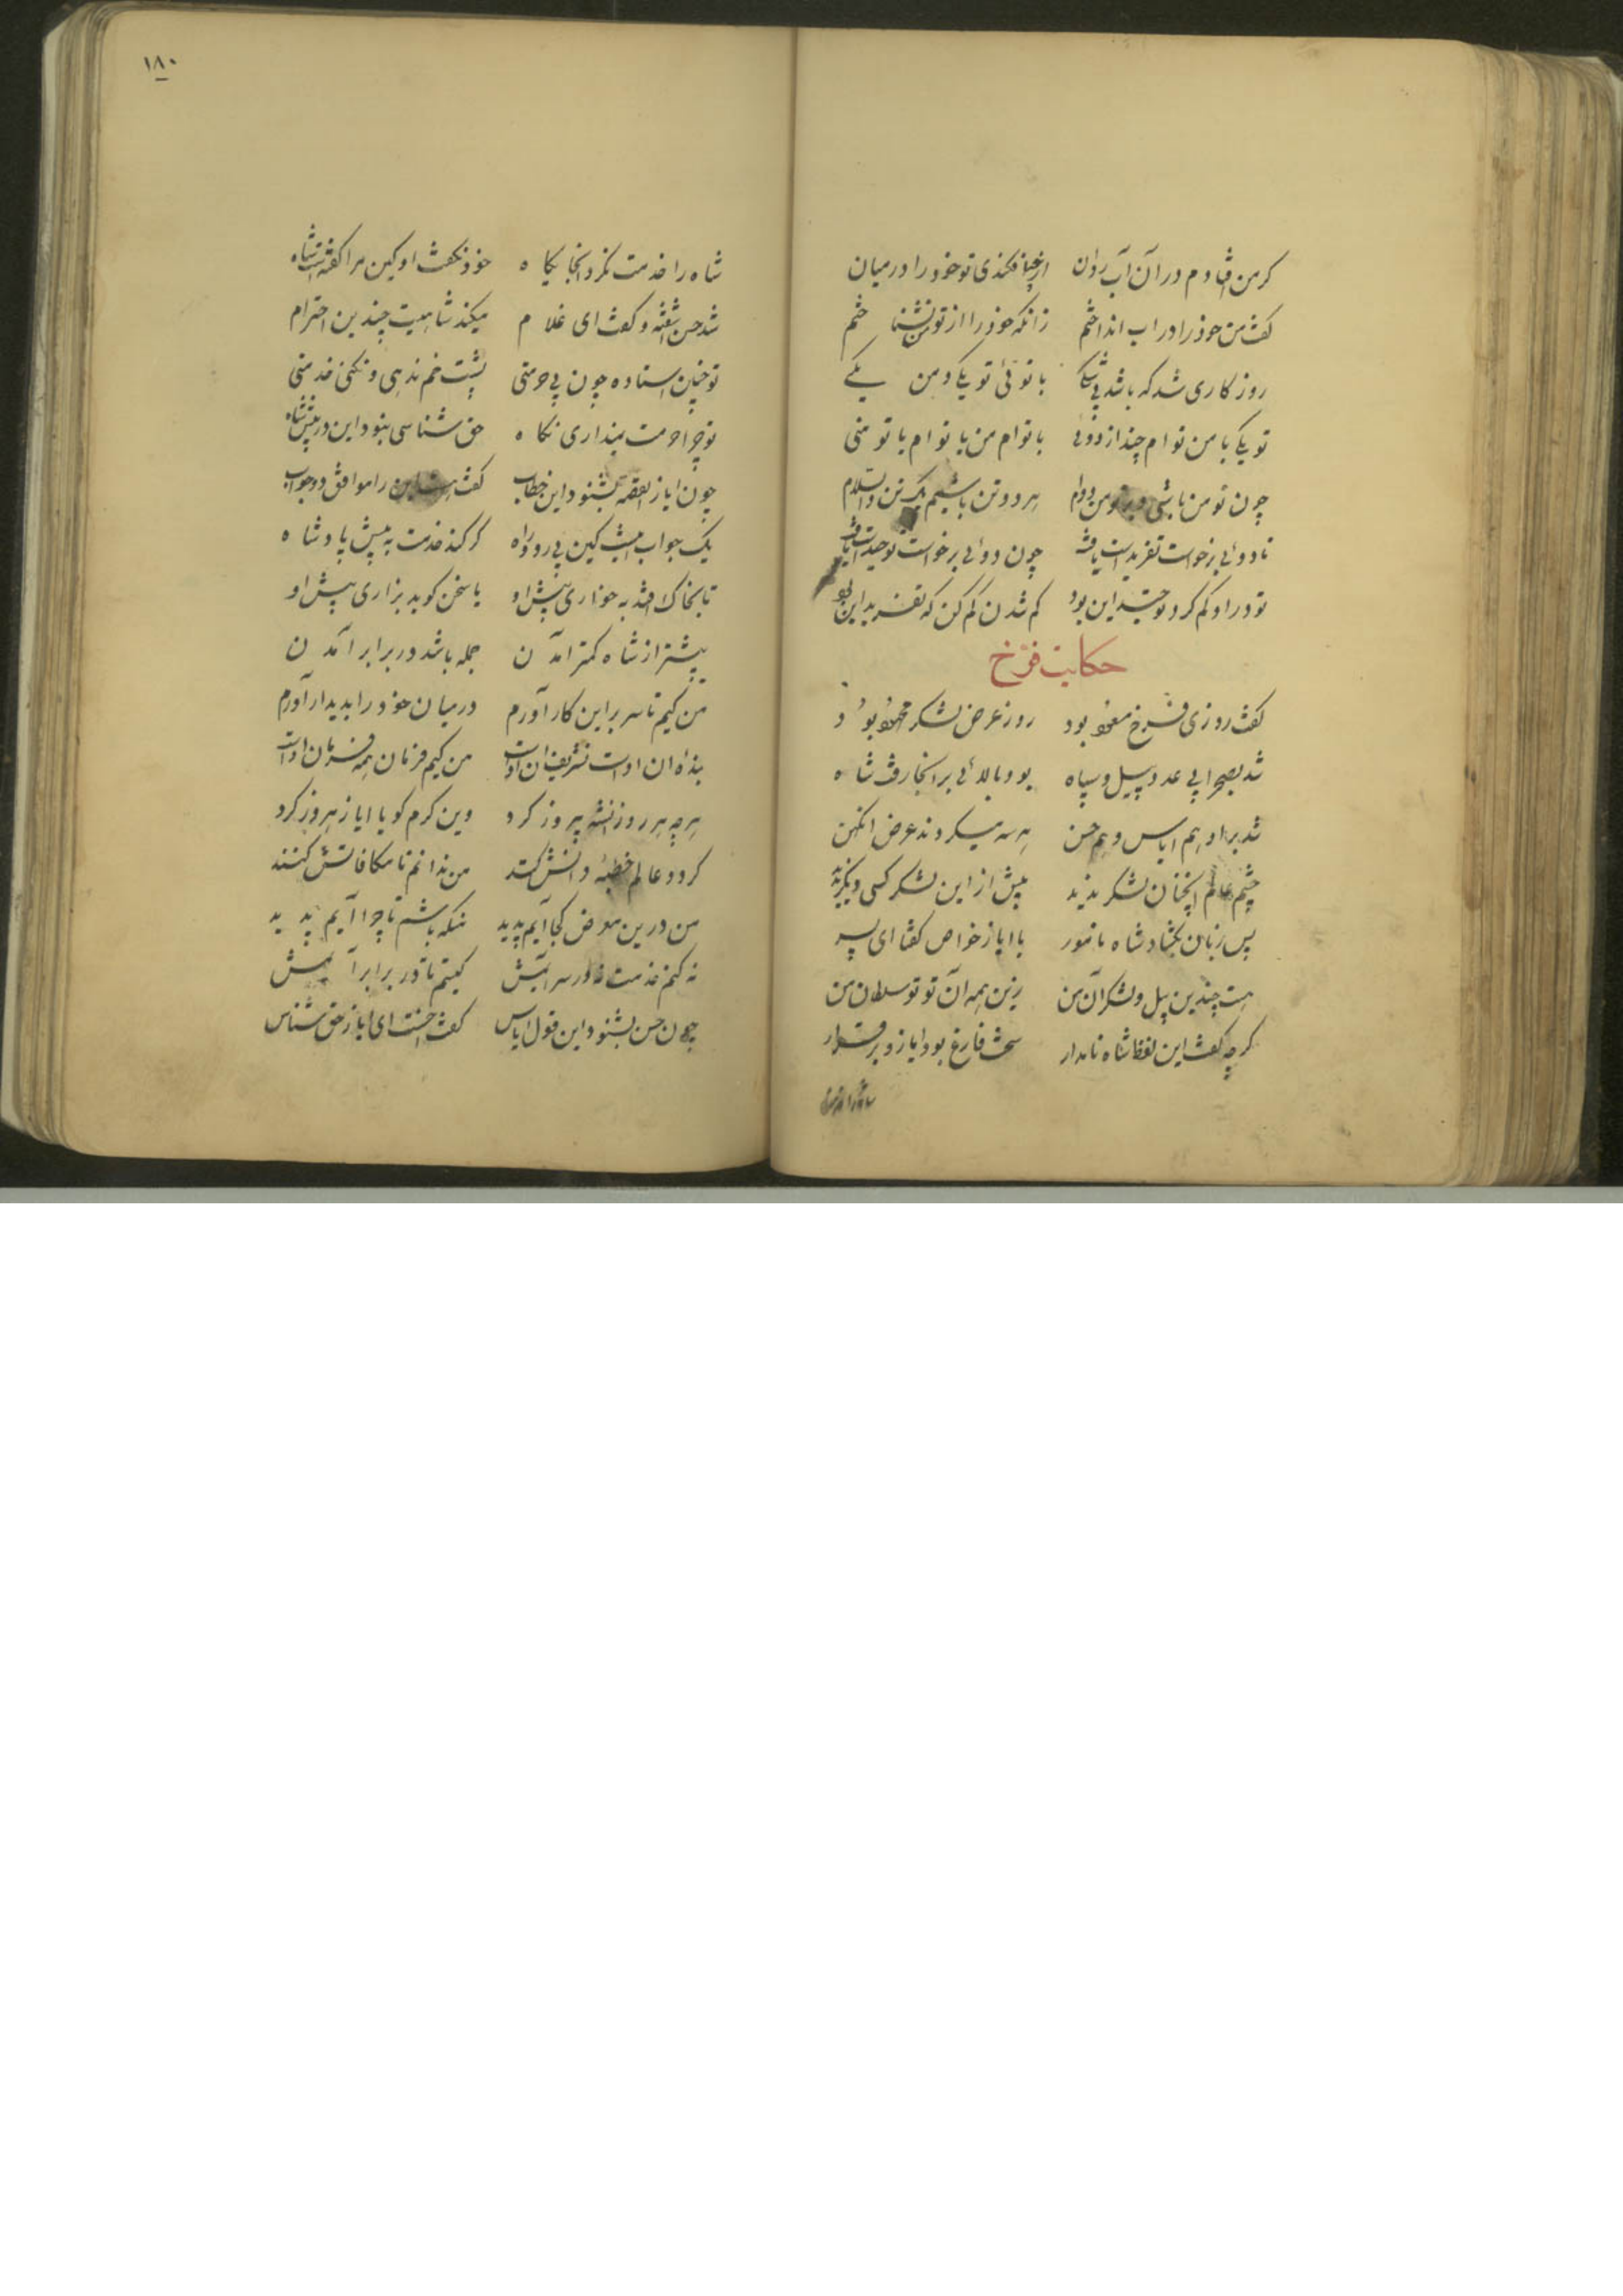 کر من افتادم در آن آب روان از چه افکندی تو خود را در میان
کفت من خود را در اب انداختم زانکه خود را از تو می نشناختم
روزکاری شد که باشد بی شکی با توئی تو یکی و من یکی
تو یکی با من توام چند از دوئی با توام من یا توام یا تو منی
چون تو من باشی و من تو بر دوام هر دو تن باشیم یک تن والسلام
تا دوئی برخواست تفریدت بیافت چون دوئی برخواست توحیدت بیافت
تو در او کم کرد توحید این بود کم شدن کم کن که تفرید این بود
حکایت فرخ
کفت روزی فرخ و مسعود بود روز عرض لشکر محمود بود
شد بصحرا بی عدد پیل و سپاه بود بالائی بر انجا رفت شاه
شد بر او هم ایاس و هم حسن هر سه میکردند عرض انجمن
چشم عالم انچنان لشکر ندید پیش از این لشکر کسی دیکر ندید
پس زبان بکشاد شاه نامور با ایاز خواص کفتا ای پسر
هست چندین پیل و لشکر آن من زین همه آن تو تو سلطان من
کرچه کفت این لفظ شاه نامدار سخت فارغ بود ایاز و برقرار
شاه را خدمت نکرد انجایکاه
۱۸۰
شاه را خدمت نکرد انجایکاه خود نکفت او کین مرا کفتست شاه
شد حسن اشفته و کفت ای غلام میکند شاهیت چندین احترام
تو چنین استاده چون بی حرمتی پشت خم ندهی و نکنی خدمتی
تو چرا حرمت نمیداری نکاه حق شناسی نبود این در پیش شاه
چون ایاز القصه بشنود این خطاب کفت هست این را موافق دو جواب
یک جواب انیست کین بی رو و راه کر کند خدمت به پیش پادشاه
تا بخاک افتد به خواری پیش او یا سخن کوید بزاری پیش او
بیشتر از شاه کمتر امدن جمله باشد در برابر آمدن
من کیم تا سر براین کار آورم در میان خود را بدیدار آورم
بنده آن اوست تشریف آن اوست من کیم فرمان همه فرمان اوست
هر چه هر روز شه پیروز کرد وین کرم کو با ایاز امروز کرد
کر دو عالم خطبه ذاتش کنند من ندانم تا مکافاتش کنند
من درین معرض کجا آیم پدید منکه باشم تا چرا آیم پدید
نه کنم خدمت نه در سر ایمش کیستم تا در برابر آیمش
چون حسن بشنود این قول ایاس کفت احسنت ای ایاز حق شناس